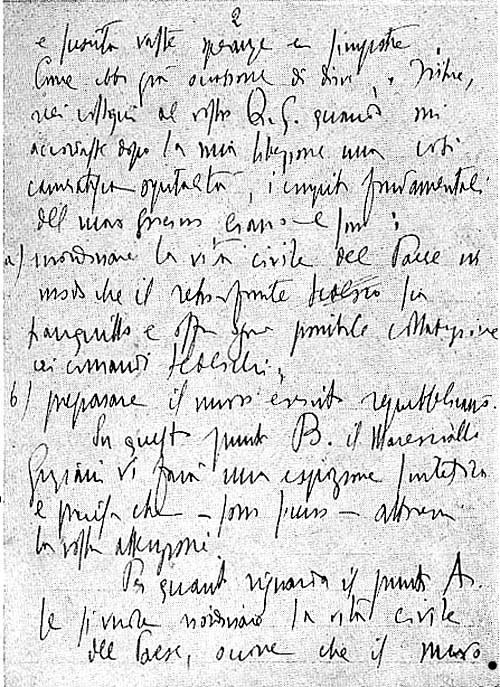 2
e suscita vaste speranze e simpatie.
Come ebbi già occasione di dirvi, Führer,
nei colloqui al vostro Q.G. quando mi
accordaste dopo la mia liberazione una così
cameratesca ospitalità, i compiti fondamentali
del nuovo Governo erano e sono:
a) riordinare la vita civile del Paese in
modo che il retrofronte tedesco sia
tranquillo e offra ogni possibile collaborazione
ai comandi tedeschi;
b) preparare il nuovo esercito repubblicano.
Su questo punto B. il Maresciallo
Graziani vi farà una esposizione sintetica
e precisa che - sono sicuro - attirerà
la vostra attenzione.
Per quanto riguarda il punto A.
se si vuole riordinare la vita civile
del Paese, occorre che il nuovo